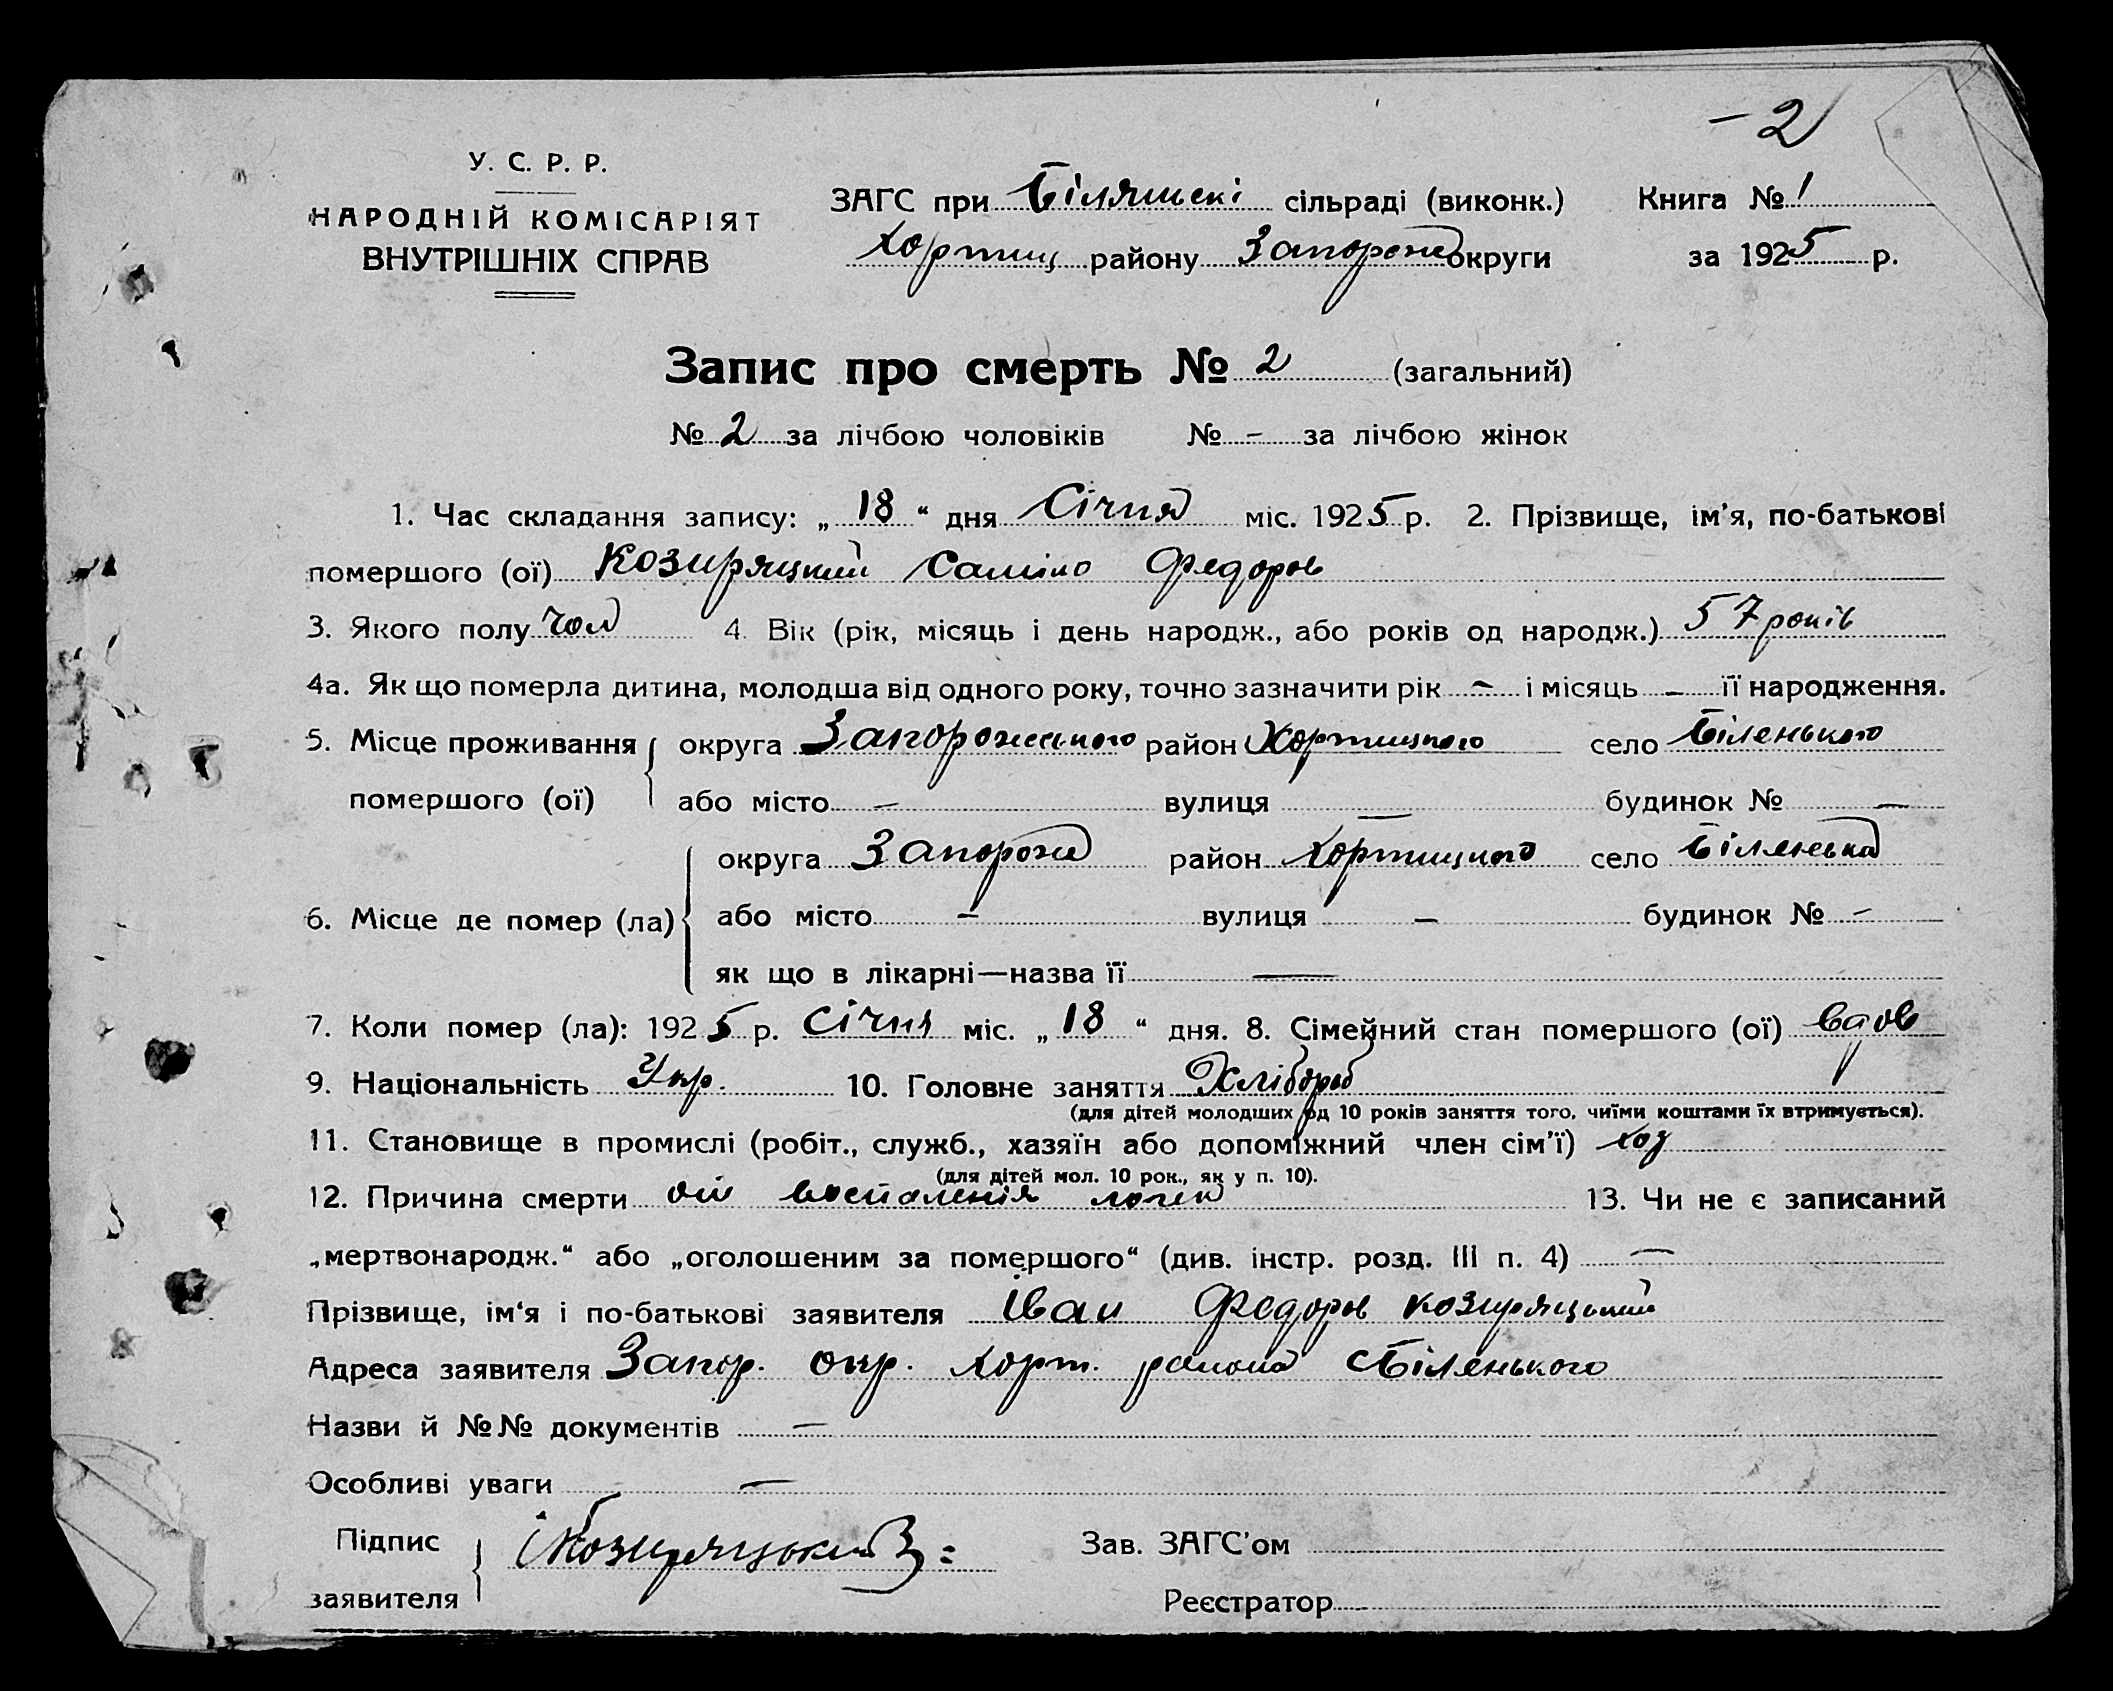 – 2
У. С. Р. Р.
НАРОДНІЙ КОМІСАРІЯТ
ВНУТРІШНІХ СПРАВ
ЗАГС при сільраді (виконк.) Книга № 1
Хортиц району Запорож округи за 1925 р.
Запис про смерть № 2 (загальний)
№ 2 за лічбою чоловіків № - за лічбою жінок
1. Час складання запису: „ 18 “ дня Січня міс. 1925 р. 2. Прізвище, ім'я, по-батькові
помершого (ої) Козиряцкий Федоров
3. Якого полу чол 4. Вік (рік, місяць і день народж., або років од народж.) 57 років
4а. Як що померла дитина, молодша від одного року, точно зазначити рік - і місяць - її народження.
5. Місце проживання округа Запорожського район Хортицкого село Біленького
помершого (ої) або місто - вулиця - будинок № -
округа Запорож район Хортицкого село Біленька
6. Місце де помер (ла) або місто - вулиця - будинок № -
як що в лікарні—назва її —
7. Коли помер (ла): 1925 р. січня міс. „ 18 “ дня. 8. Сімейний стан помершого (ої) вдов
9. Національність Укр. 10. Головне заняття Хлібороб
(для дітей молодших од 10 років заняття того, чиїми коштами їх втримується).
11. Становище в промислі (робіт., служб., хазяїн або допоміжний член сім'ї) хоз
(для дітей мол. 10 рок., як у п. 10).
12. Причина смерти от воспаленія 13. Чи не є записаний
„мертвонародж.“ або „оголошеним за помершого“ (див. інстр. розд. III п. 4) —
Прізвище, ім'я і по-батькові заявителя Іван Федоров Козиряцький
Адреса заявителя Запор. окр. Хорт. района с Біленького
Назви й №№ документів —
Особливі уваги —
Підпис
заявителя Козиряцький
Зав. ЗАГС'ом
Реєстратор